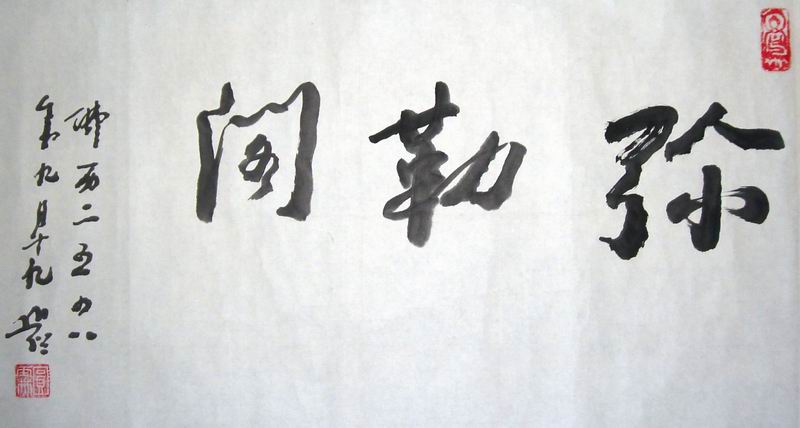 弥勒阁
佛历二五四八
年九月十九